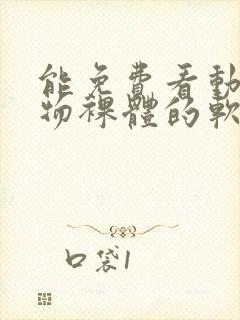 能免費看動
物裸體的軟
口袋1